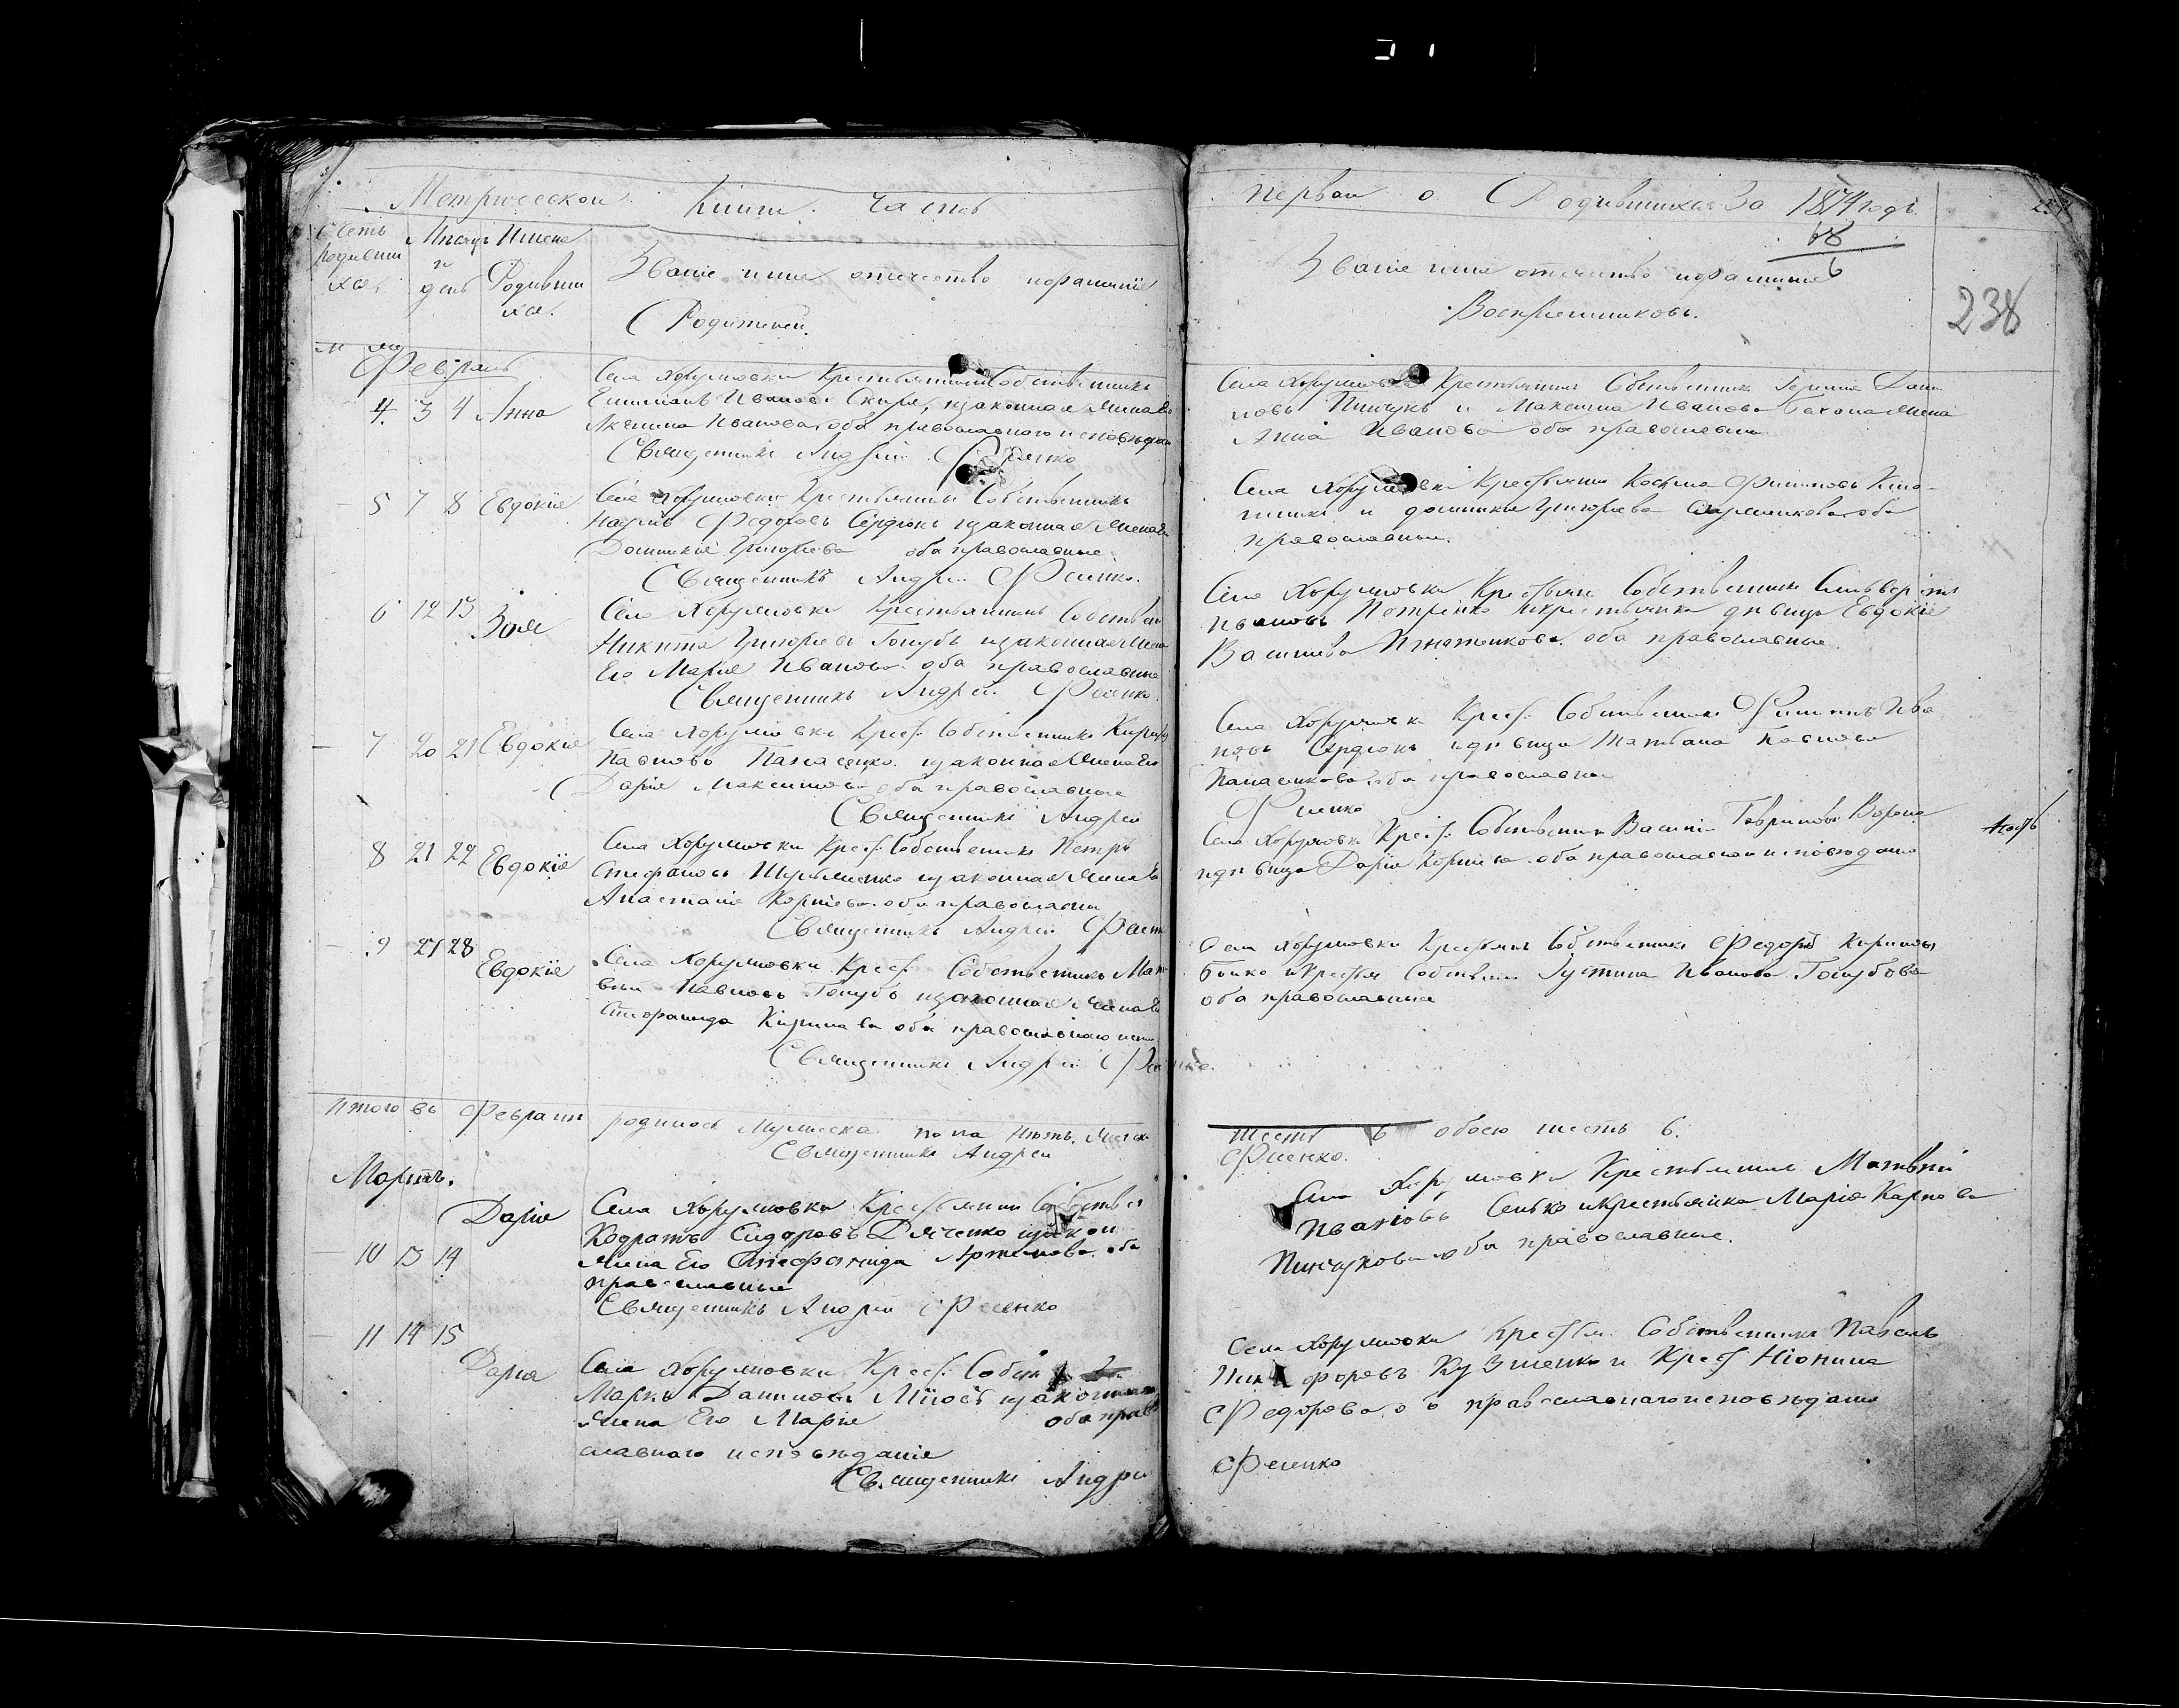 Метрической Книги Часть
первая о Родившихся За 1874 годъ.
68
6
238
Счетъ родивши хся
Мѣсяцъ и день
Имена Родивши хся.
Званіе имя отечество и фамилія
Родителей.
Званіе имя отечество и фамилія
Воспріемниковъ.
Февраль
4. 3 4 Анна
Села Хорумовки Крестьянинъ Собственникъ
Иванов Скиря, и законная жена Его
Акелина Иванова оба православнаго исповѣданія
Священникъ Андрей
Села Хорумовки Крестьянинъ Собственник Дани
ловъ Пинчукъ и Максима Иванова жена
Анна Иванова оба православные
5 7 8 Евдокія
Села Хорумовки Крестьянинъ Собственникъ
Наумъ Федоровъ Сердюкъ и законная жена Его
Домникія Григорьева оба православные.
Священникъ Андрей Фесенко.
Села Хорумовки Крестьянин Косьма Филиповъ
и Домникія Григорьева оба
православные.
6 12 13 Зоя
Село Хорумовки Крестьянинъ Собствен
Никита Григорьевъ Голубъ и законная жена
Его Марія Иванова оба православные
Священникъ Андрей Фесенко.
Села Хорумовки Крестьян Собственникъ Сильвестръ
Ивановъ Петренко и крестьянка дѣвица Евдокія
Василіева Игнатенкова оба православные.
7 20 21 Евдокія
Села Хорумовки Крест. Собственникъ Кирилъ
Павловъ Панасенко и законная жена Его
Дарія Максимова оба православные
Священникъ Андрей
Села Хорумовки Крест. Собственникъ Филипъ Ива
новъ Сердюкъ и дѣвица Татіана Павлова
Панасенкова оба православные
Фесенко
8 21 22 Евдокія
Села Хорумовки Крест. Собственникъ Петръ
Стефановъ и законная жена Его
Анастасія Корнѣева оба православны
Священникъ Андрей Фесен
Села Хорумовки Крест. Собственник Василій Гавриловъ Ворона
и дѣвица Дарія Корнѣева оба православнаго исповѣданія
9 27 28 Евдокія
Села Хорумовки Крест. Собственникъ Мат
вѣй Павловъ Голубъ и законная жена Его
Стефанида Кирилова оба православнаго испо
Священникъ Андрей Фесенко.
Села Хорумовки Крестьян Собственникъ Федоръ Кириловъ
Бойко и Крестьян Собствен Іустина Иванова Голубова
оба православные
Итого въ Февралѣ родилось Мужеска пола нѣтъ, Женска
Священникъ Андрей
шесть 6 обоею шесть 6.
Фесенко.
Мартъ.
10 13 14 Дарія
Села Хорумовки Крестьянин Собствен
Кодратъ Сидоровъ Дяченко и закон
жена Его Стефанида Артемова оба
православные
Священникъ Андрей Фесенко
Села Хорумовки Крестьянинъ Матвѣй
Ивановъ Сенько и крестьянка Марія Карпова
Пинчукова оба православные.
11 14 15 Дарія
Села Хорумовки Крест. Собств
Марко Даниловъ и законная
жена Его Марія оба право
славнаго исповѣданія
Священникъ Андрей
Села Хорумовки Крестьян. Собственникъ Павелъ
Никифоровъ Кузменко и Крест Нюнила
Федорова оба православнаго исповѣданія
Фесенко